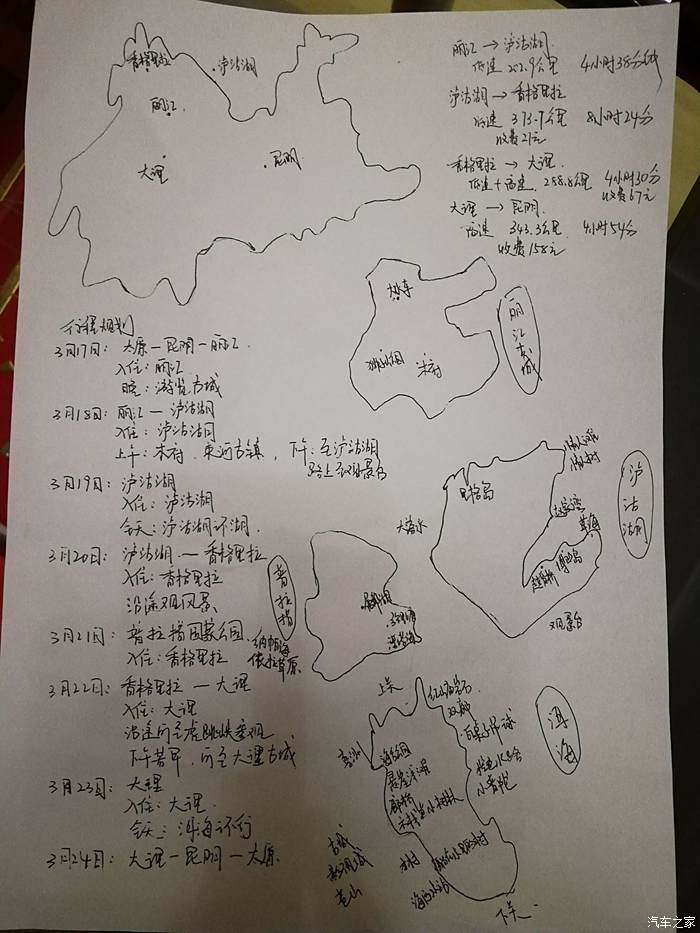 香格里拉
泸沽湖
丽江
大理
昆明
丽江→泸沽湖
低速 202.9公里 4小时38分钟
泸沽湖→香格里拉
373.9公里 8小时24分
收费21元
香格里拉→大理
低速+高速 288.8公里 4小时30分
收费67元
大理→昆明
高速 343.3公里 4小时54分
收费158元
木府
丽江古城
行程规划
3月17日: 太原—昆明—丽江
入住:丽江
晚:游览古城
3月18日: 丽江—泸沽湖
入住:泸沽湖
上午:木府、束河古镇,下午:至泸沽湖
路上至观景台
3月19日: 泸沽湖
入住:泸沽湖
全天:泸沽湖环湖.
3月20日: 泸沽湖—香格里拉
入住:香格里拉
沿途观风景
3月21日: 普拉措国家公园、纳帕海
依拉草原
入住:香格里拉
3月22日: 香格里拉—大理
入住:大理
沿途可至虎跳峡景观
下午若早,可至大理古城
3月23日: 大理
入住:大理.
全天:洱海环行
3月24日: 大理—昆明—太原.
情人滩
情人树
里格岛
赵家湾
草海
大落水
观景台
泸沽湖
普拉措
上关
双廊
喜洲
洱海
小普陀
古城
苍山
下关
汽车之家